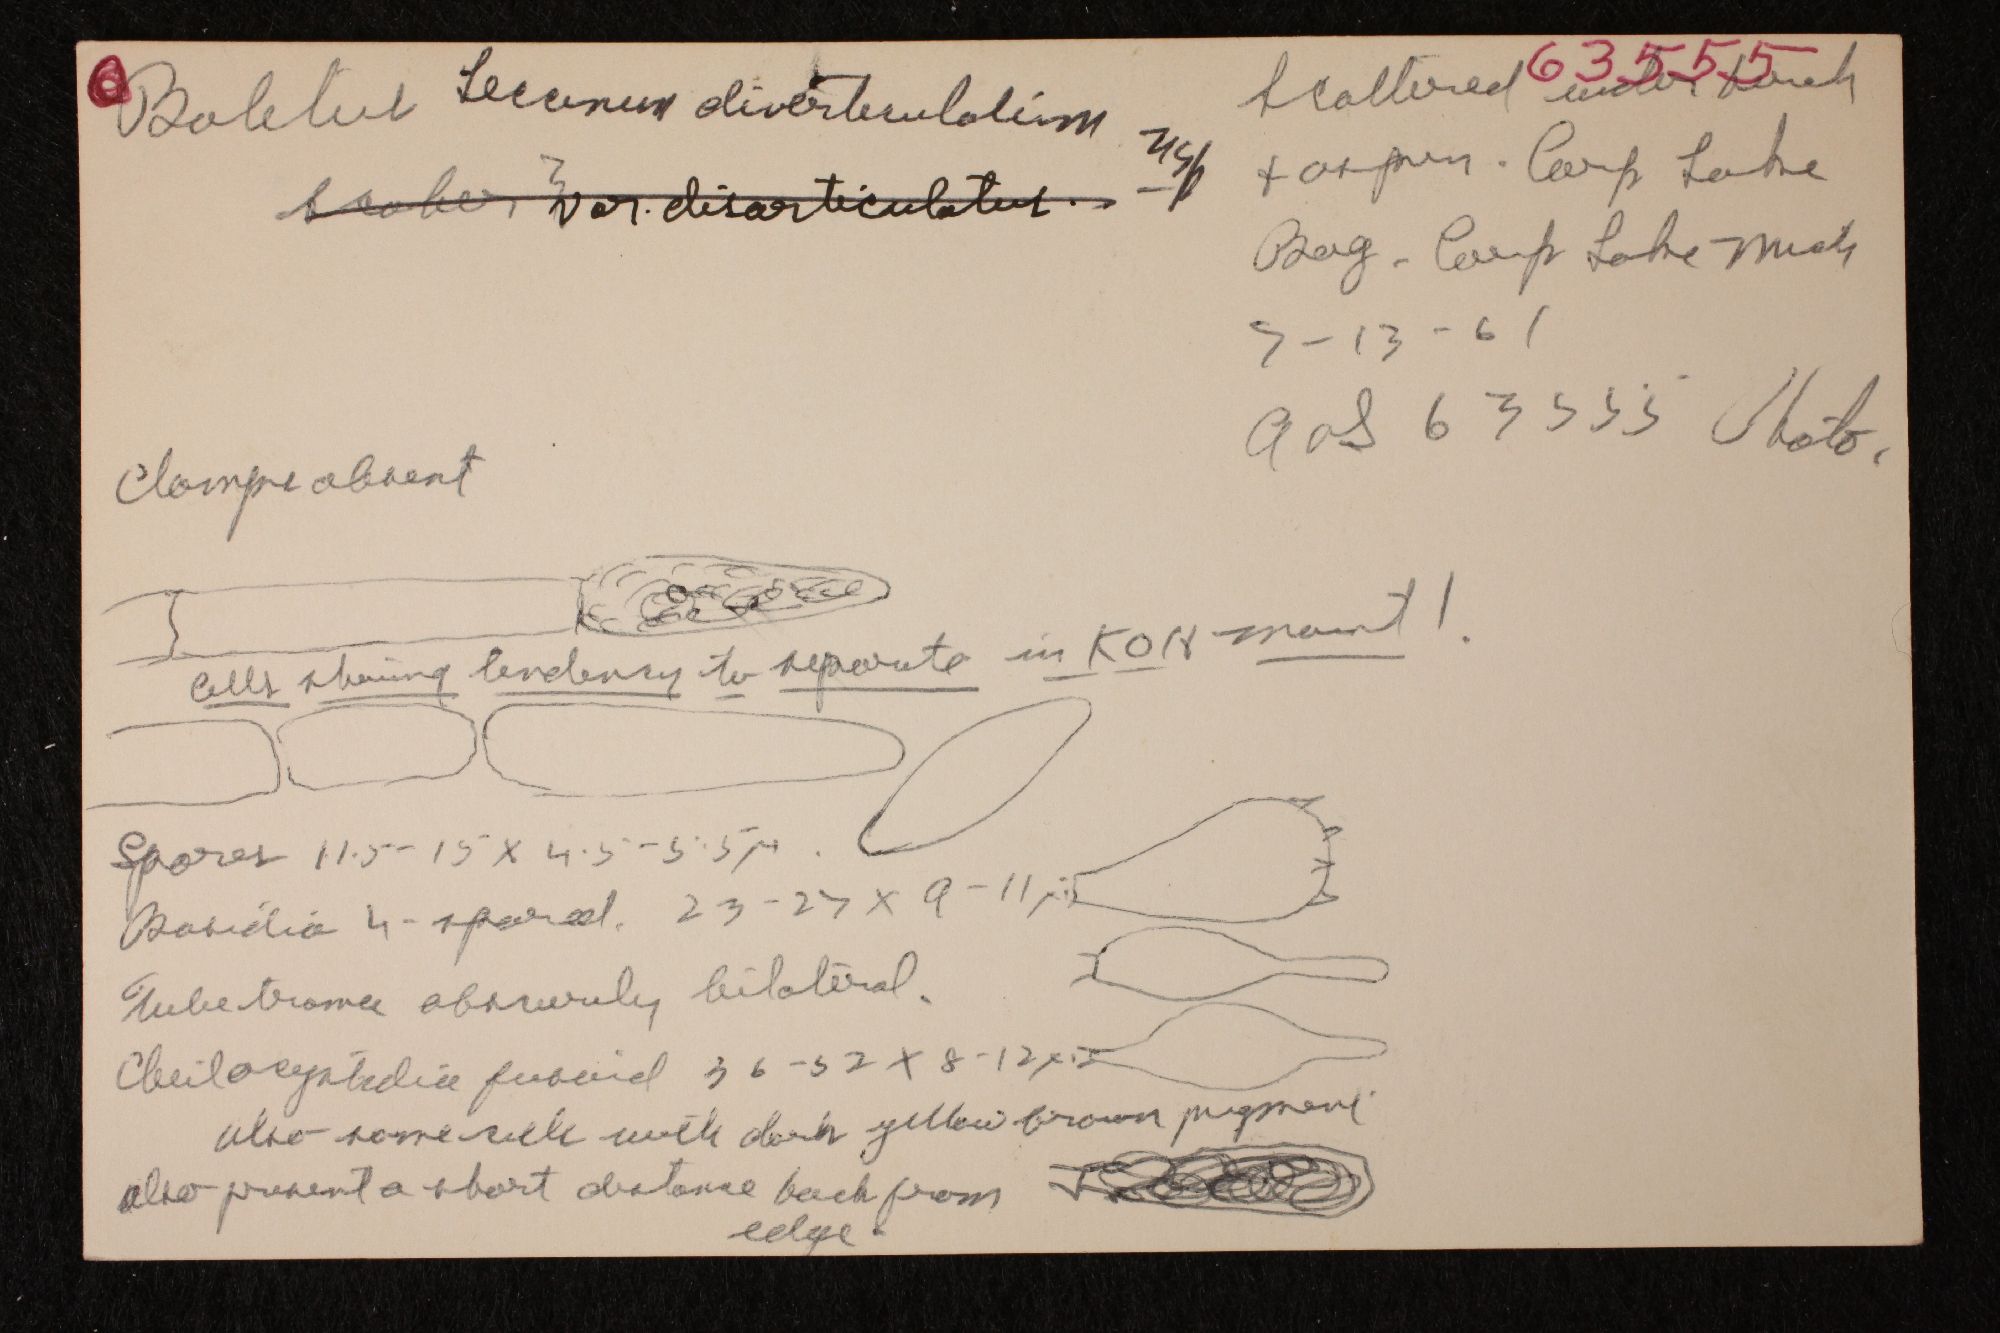 63555
Boletus Leccinum diverticulatum
scaber var. disarticulatus. Typ
Scattered under birch
+ aspen. Carp Lake
Bog. Carp Lake Mich
7-13-61
AHS 63555 Photo.
Clamps absent
Cells showing tendency to separate in KOH mount!
Spores 11.5-15 X 4.5-5.5µ.
Basidia 4-spored. 23-27 X 9-11µ
Tube trama obscurely bilateral.
Cheilocystidia fusoid 36-52 X 8-12µ
also some cells with dark yellow brown pigment
also present a short distance back from
edge.